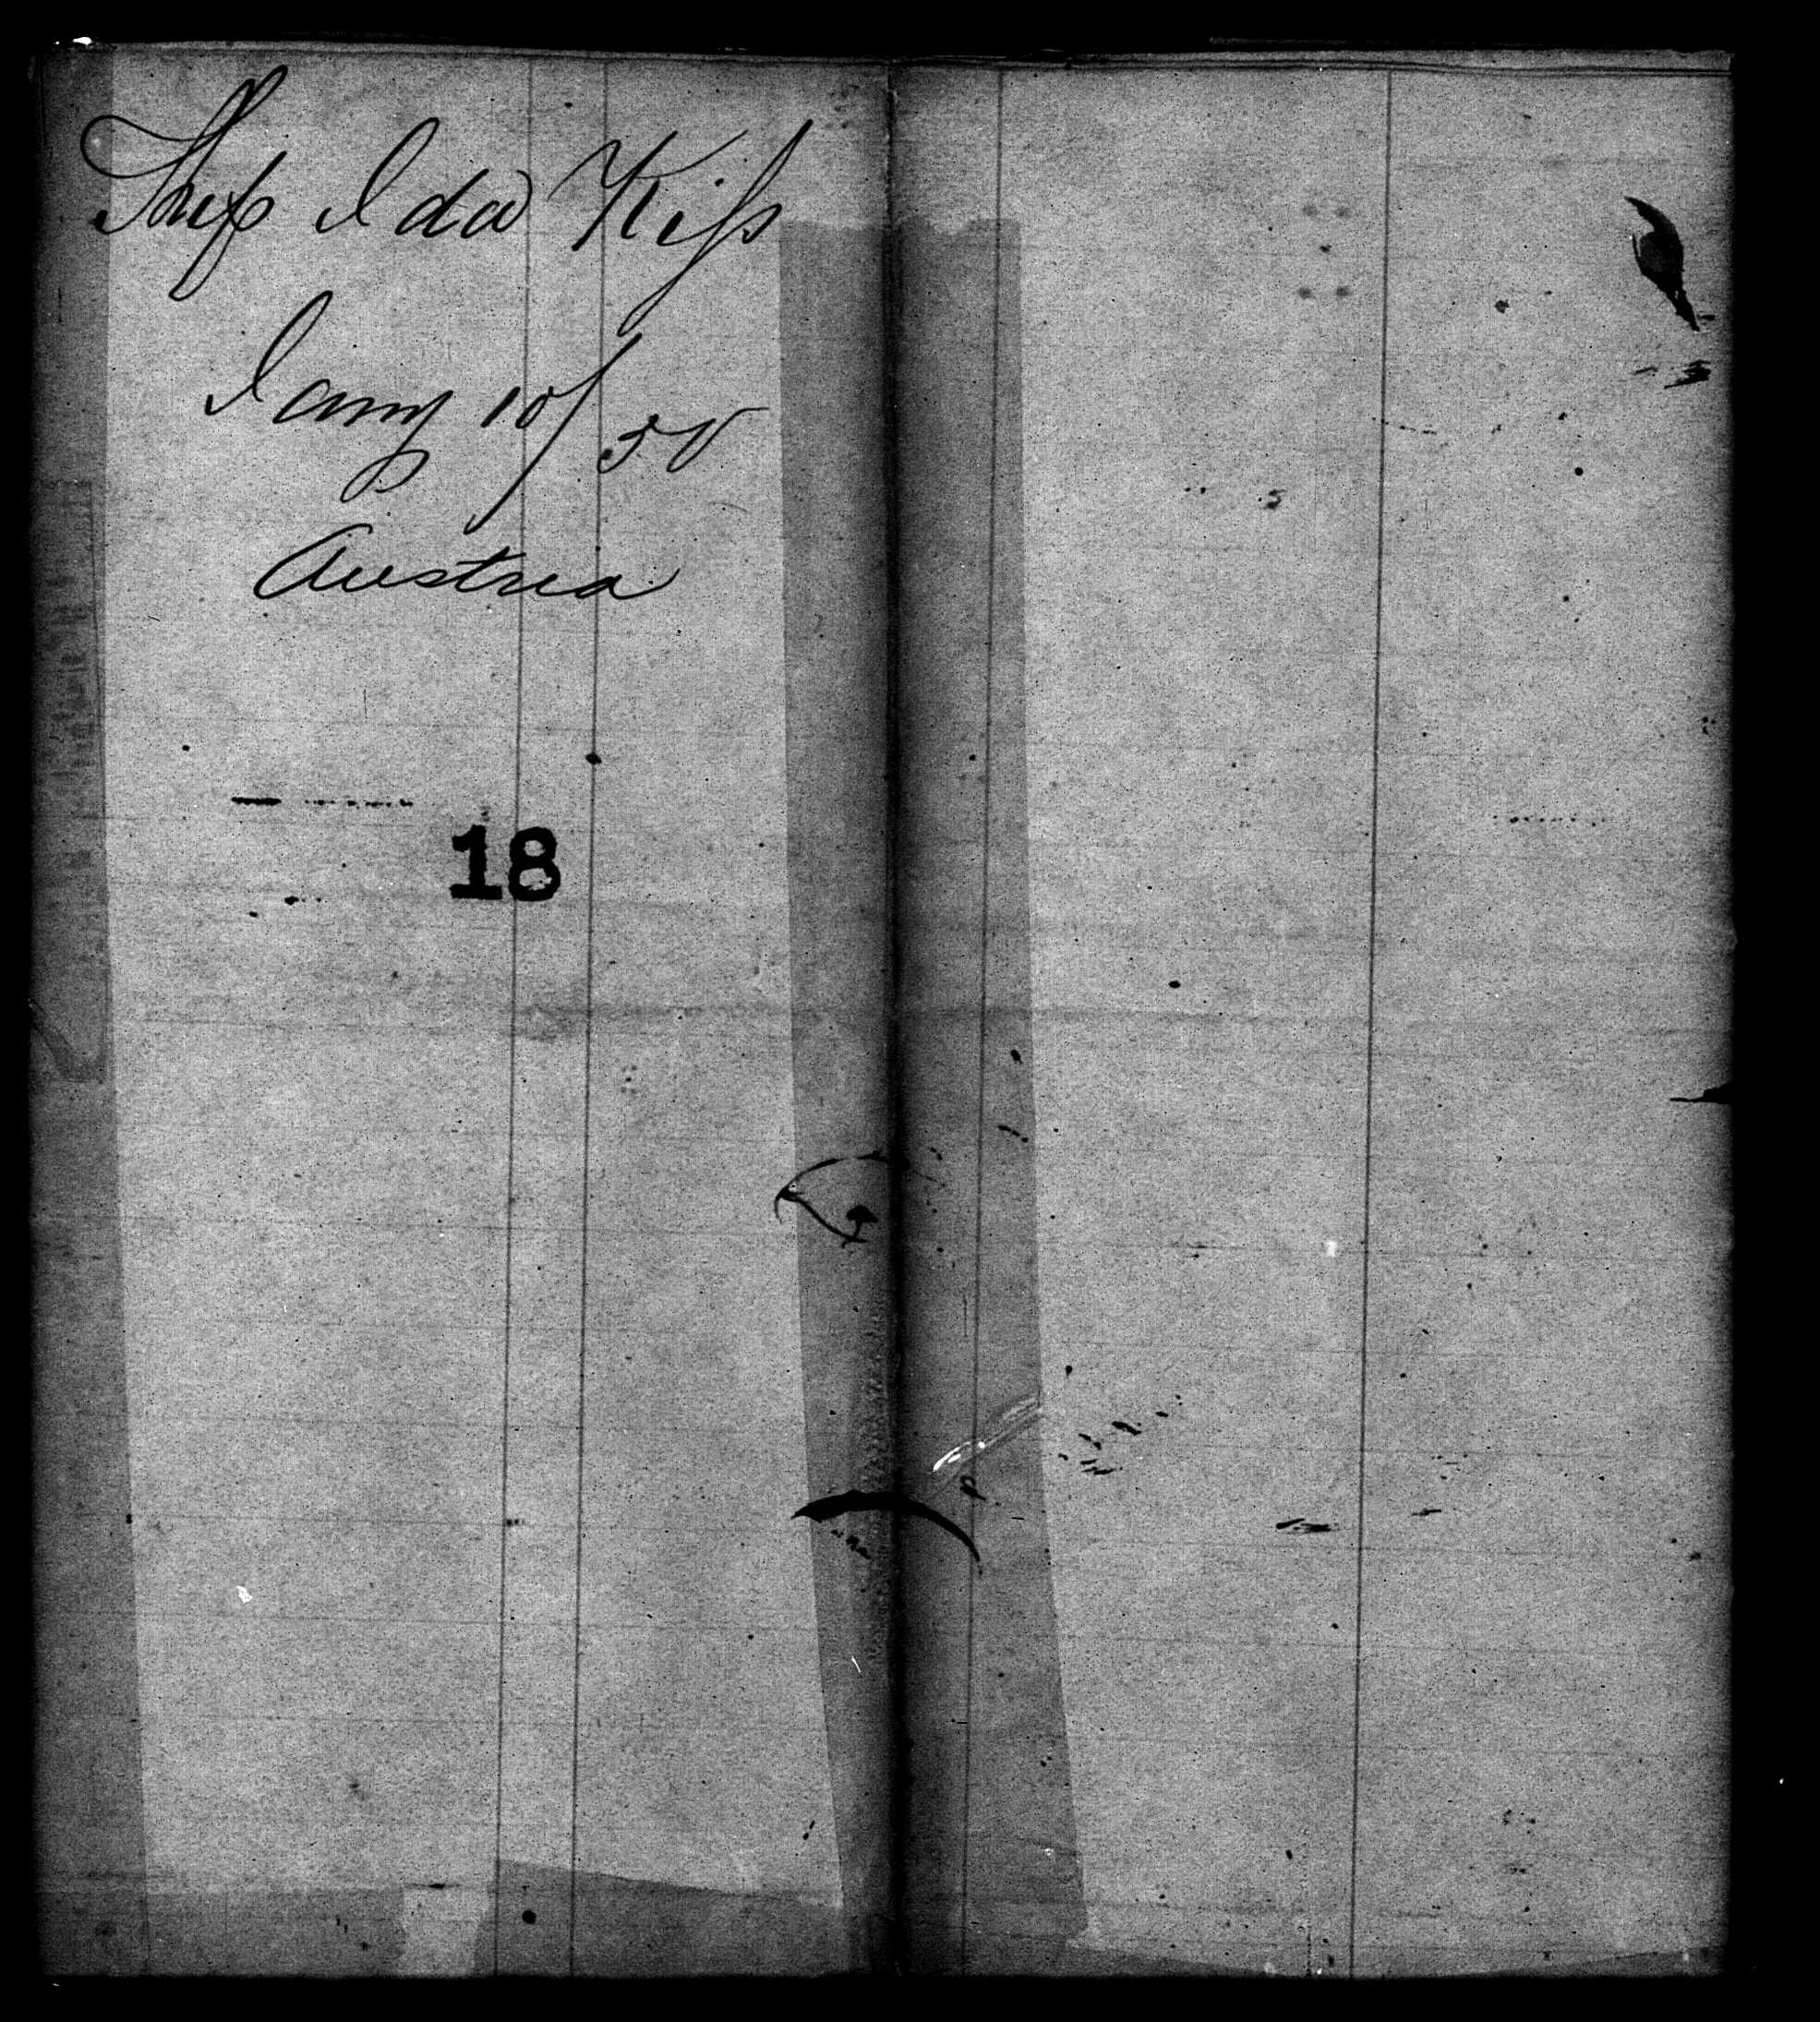 Ship Ida Kiss
Jany 10/50
Austria
18